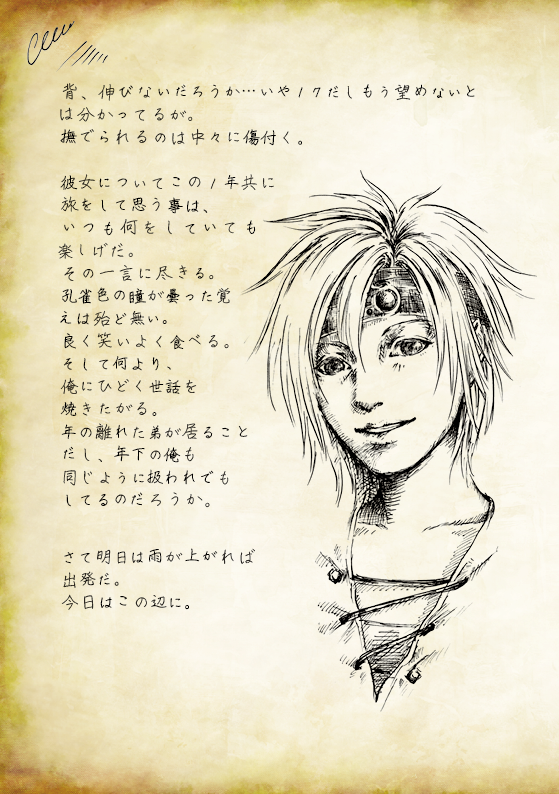 背、伸びないだろうか…いや17だしもう望めないと
は分かってるが。
撫でられるのは中々に傷付く。
彼女についてこの1年共に
旅をして思う事は、
いつも何をしていても
楽しげだ。
その一言に尽きる。
孔雀色の瞳が曇った覚
えは殆ど無い。
良く笑いよく食べる。
そして何より、
俺にひどく世話を
焼きたがる。
年の離れた弟が居ること
だし、年下の俺も
同じように扱われでも
してるのだろうか。
さて明日は雨が上がれば
出発だ。
今日はこの辺に。